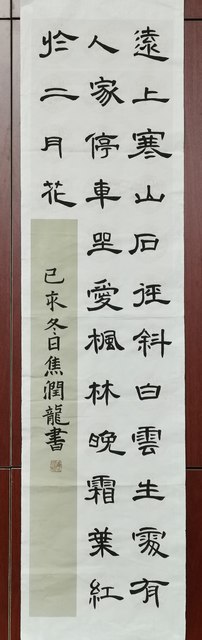 遠上寒山石徑斜白雲生處有
人家停車坐愛楓林晚霜葉紅
於二月花
己亥冬日焦潤龍書